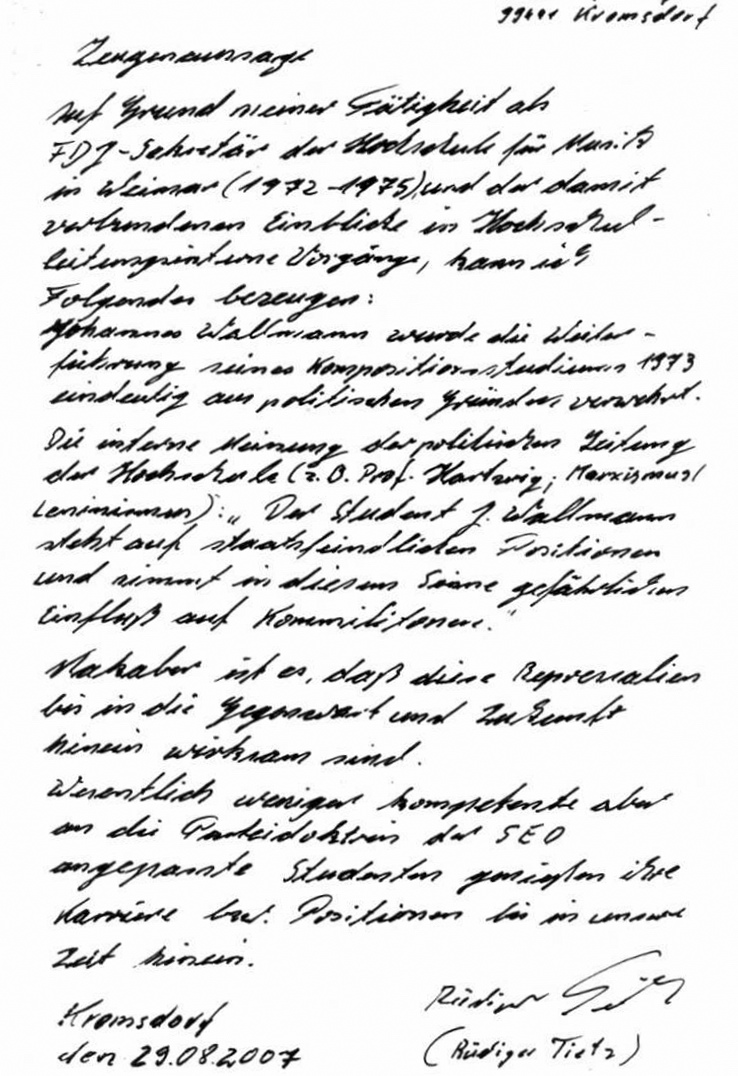 99441 Kromsdorf
Zeugenaussage
Auf Grund meiner Tätigkeit als
FDJ-Sekretär der Hochschule für Musik
in Weimar (1972-1975) und der damit
verbundenen Einblicke in Hochschul-
leitungsinterne Vorgänge, kann ich
Folgendes bezeugen:
Johannes Wallmann wurde die Weiter-
führung seines Kompositionsstudiums 1973
eindeutig aus politischen Gründen verwehrt.
Die interne Meinung der politischen Leitung
der Hochschule (z.B. Prof. Hartwig; Marxismus/
Leninismus): „Der Student J. Wallmann
steht auf staatsfeindlichen Positionen
und nimmt in diesem Sinne gefährlichen
Einfluß auf Kommilitonen."
Makaber ist es, daß diese Repressalien
bis in die Gegenwart und Zukunft
hinein wirksam sind.
Wesentlich weniger kompetente aber
an die Parteidoktrin der SED
angepasste Studenten genießen ihre
Karriere bzw. Positionen bis in unsere
Zeit hinein.
Kromsdorf
den 29.08.2007
Rüdiger Tietz
(Rüdiger Tietz)